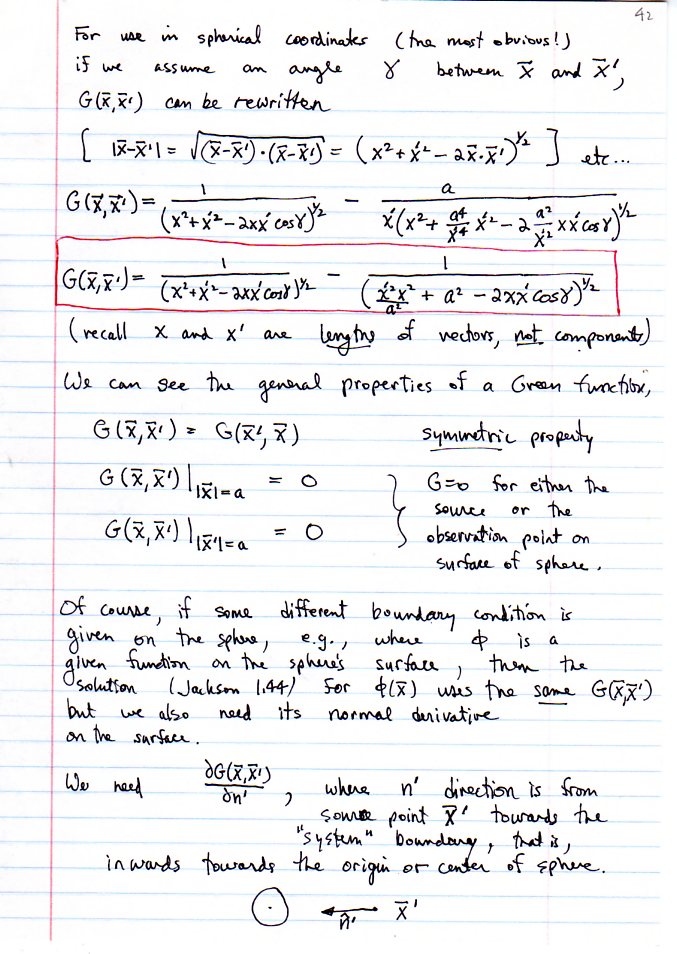 42
For use in spherical coordinates (the most obvious!)
if we assume an angle γ between x̄ and x̄',
G(x̄,x̄') can be rewritten
[ |x̄-x̄'| = √((x̄-x̄')·(x̄-x̄')) = (x²+x'²-2x̄·x̄')^1/2 ] etc...
G(x̄,x̄') = 1/(x²+x'²-2xx'cosγ)^1/2 - a/(x'(x²+ a⁴/x'⁴ x'² - 2 a²/x'² xx'cosγ)^1/2)
G(x̄,x̄') = 1/(x²+x'²-2xx'cosγ)^1/2 - 1/(x'²x²/a² + a² - 2xx'cosγ)^1/2
(recall x and x' are lengths of vectors, not components)
We can see the general properties of a Green function,
G(x̄,x̄') = G(x̄',x̄) symmetric property
G(x̄,x̄')| |x̄|=a = 0
G(x̄,x̄')| |x̄'|=a = 0
} G=0 for either the
source or the
observation point on
surface of sphere.
Of course, if some different boundary condition is
given on the sphere, e.g., where Φ is a
given function on the sphere's surface, then the
solution (Jackson 1.44) for Φ(x̄) uses the same G(x̄,x̄')
but we also need its normal derivative
on the surface.
We need ∂G(x̄,x̄')/∂n', where n' direction is from
source point x̄' towards the
"system" boundary, that is,
inwards towards the origin or center of sphere.
n̂' x̄'